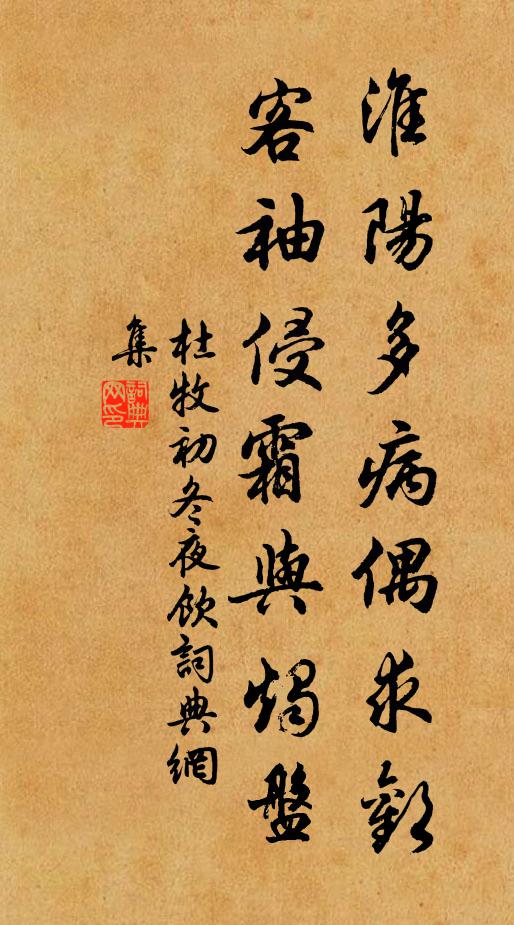 淮陽多病偶求歡
客袖侵霜與燭盤
杜牧初冬夜飲詞典網
集
詞典網印